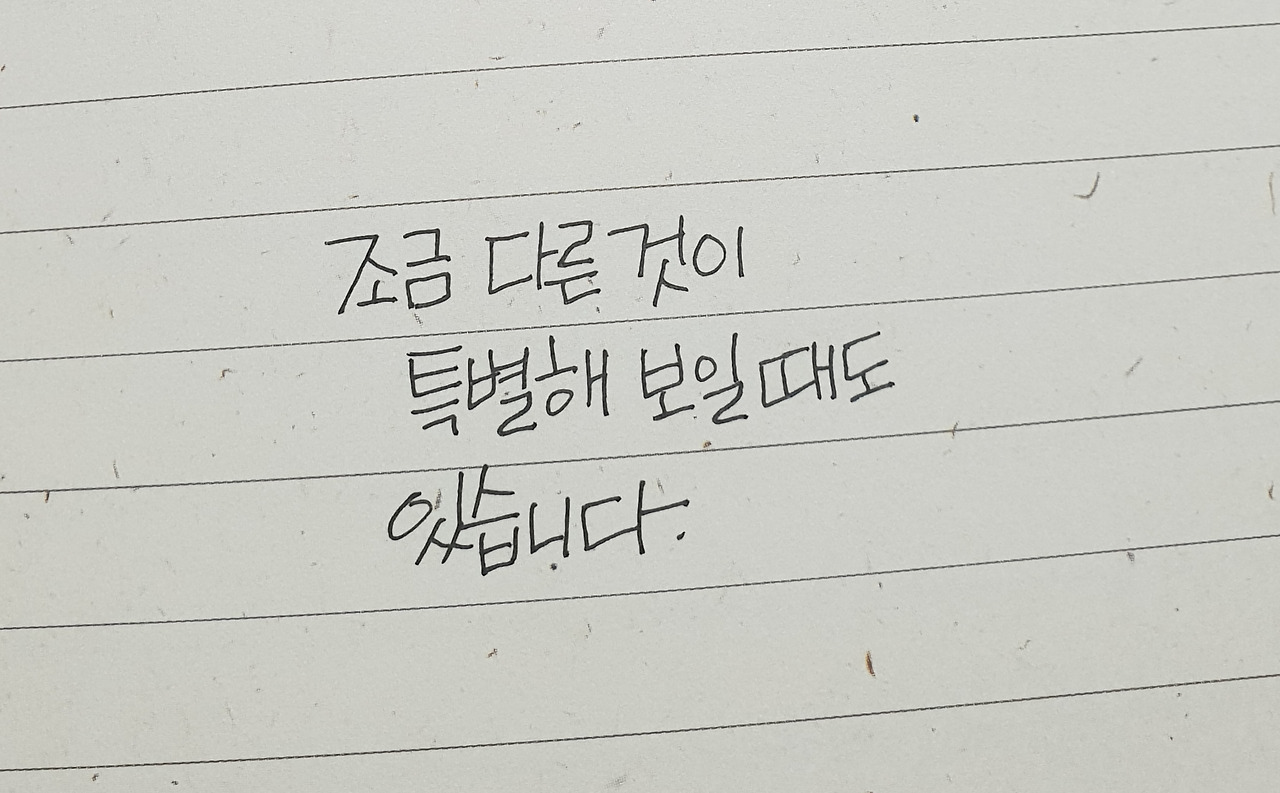 조금 다른 것이
특별해 보일 때도
있습니다.